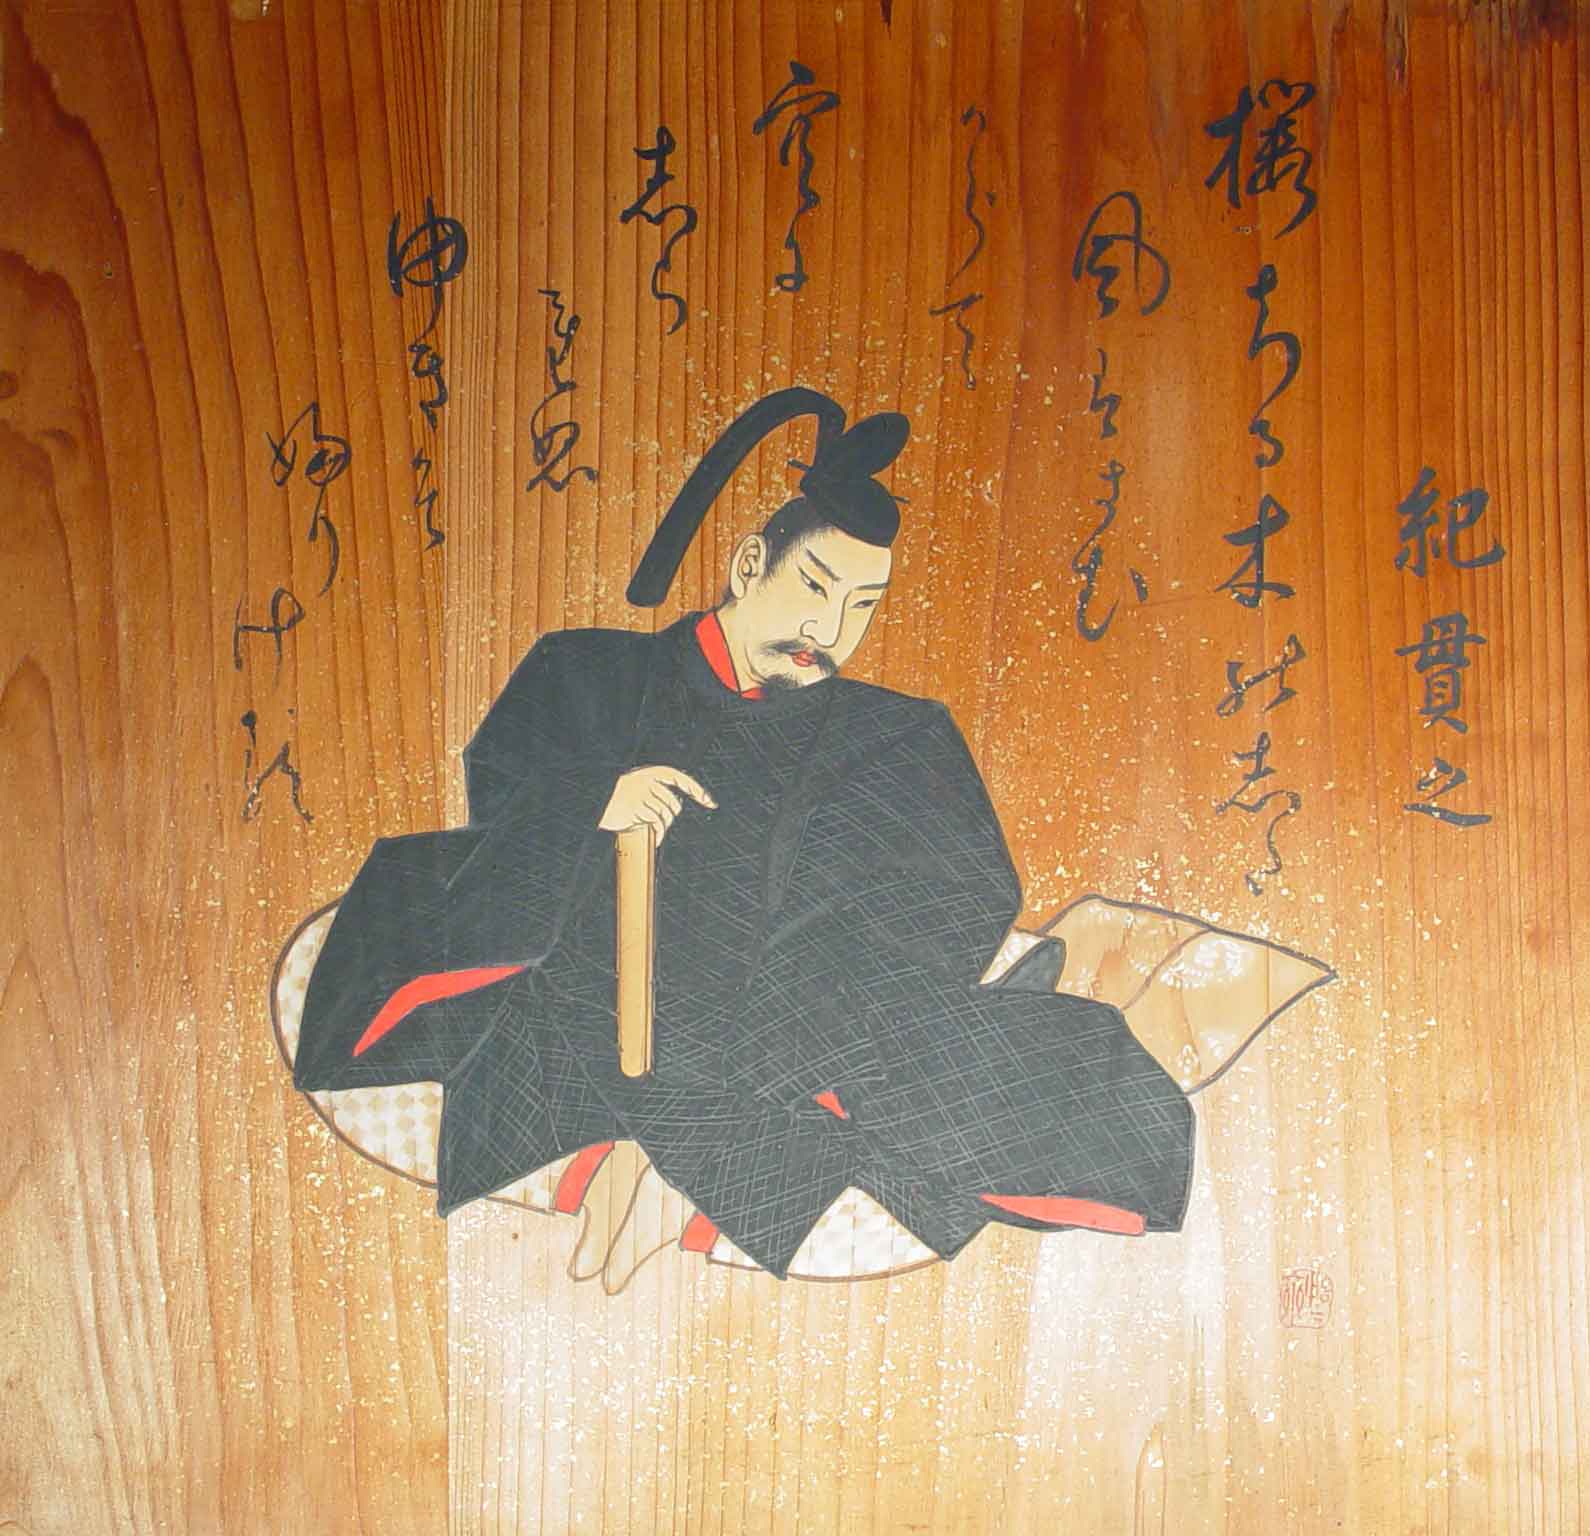 紀貫之
櫻ちる木のした
風はさむ
からて
空に
しら
れぬ
ゆきそ
ふりける